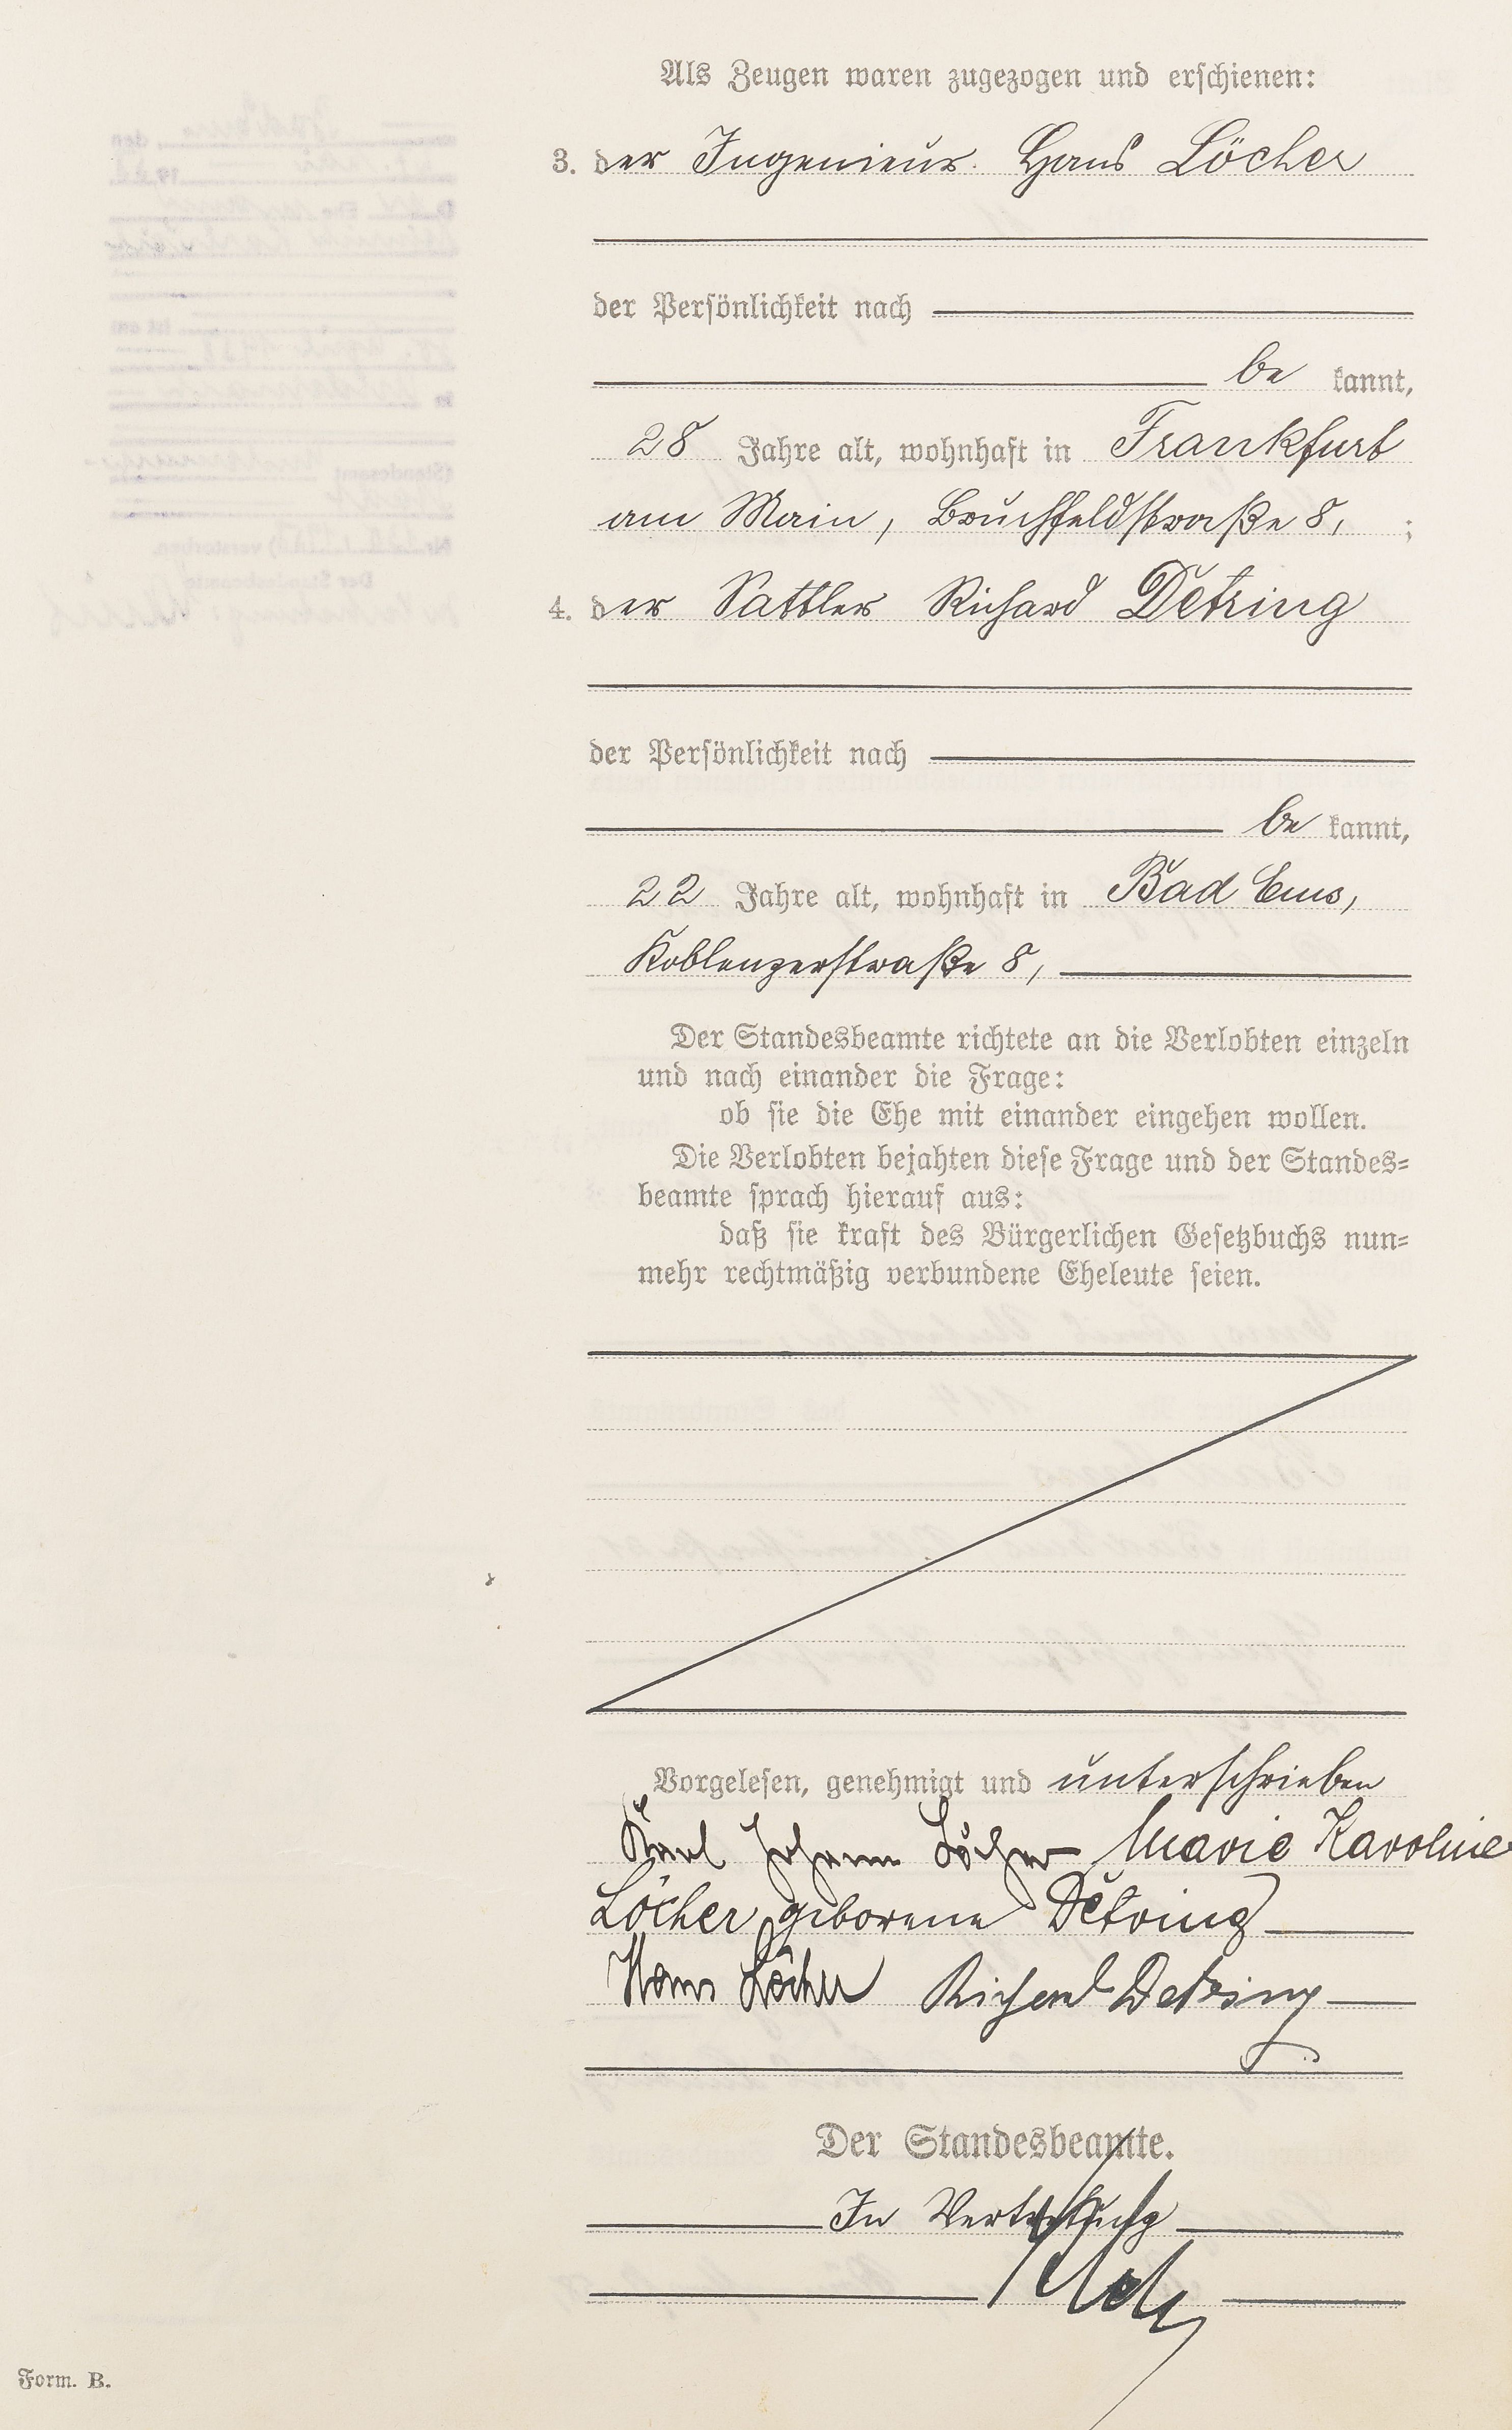 Als Zeugen waren zugezogen und erschienen:
3. der Ingenieur Hans Löcher
der Persönlichkeit nach
be kannt,
28 Jahre alt, wohnhaft in Frankfurt
am Main, Bruchfeldstraße 8, ;
4. der Sattler Richard Detring
der Persönlichkeit nach
be kannt,
22 Jahre alt, wohnhaft in Bad Ems,
Koblenzerstraße 8,
Der Standesbeamte richtete an die Verlobten einzeln
und nach einander die Frage:
ob sie die Ehe mit einander eingehen wollen.
Die Verlobten bejahten diese Frage und der Standes=
beamte sprach hierauf aus:
daß sie kraft des Bürgerlichen Gesetzbuchs nun=
mehr rechtmäßig verbundene Eheleute seien.
Vorgelesen, genehmigt und unterschrieben
Karl Johann Löcher Marie Karoline
Löcher geborene Detring
Hans Löcher Richard Detring
Der Standesbeamte.
In Vertretung
Form. B.